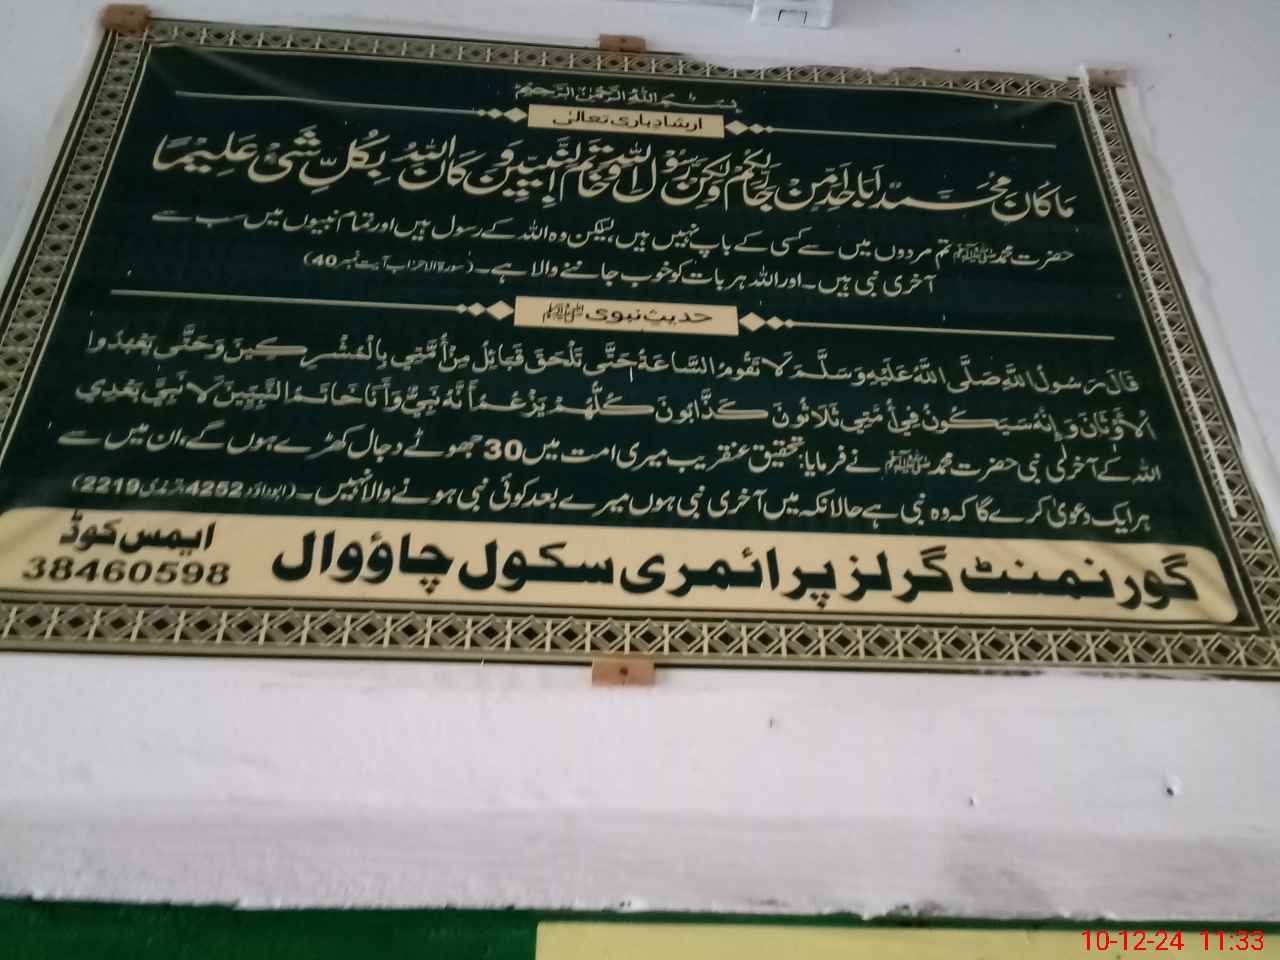 بِسْمِ اللهِ الرَّحْمٰنِ الرَّحِيْمِ
ارشاد باری تعالیٰ
مَا كَانَ مُحَمَّدٌ اَبَا اَحَدٍ مِّنْ رِّجَالِكُمْ وَلٰكِنْ رَّسُوْلَ اللهِ وَخَاتَمَ النَّبِيّٖنَ وَ كَانَ اللهُ بِكُلِّ شَیْءٍ عَلِيْمًا
حضرت محمد ﷺ تم مردوں میں سے کسی کے باپ نہیں ہیں، لیکن وہ اللہ کے رسول ہیں اور تمام نبیوں میں سب سے
آخری نبی ہیں۔ اور اللہ ہر بات کو خوب جاننے والا ہے۔ (سورۃ الاحزاب آیت نمبر 40)
حدیث نبوی ﷺ
قَالَ رَسُولُ اللَّهِ صَلَّى اللَّهُ عَلَيْهِ وَسَلَّمَ لَا تَقُومُ السَّاعَةُ حَتَّى تَلْحَقَ قَبَائِلُ مِنْ أُمَّتِي بِالْمُشْرِكِينَ وَحَتَّى يَعْبُدُوا
الْأَوْثَانَ وَإِنَّهُ سَيَكُونُ فِي أُمَّتِي ثَلَاثُونَ كَذَّابُونَ كُلُّهُمْ يَزْعُمُ أَنَّهُ نَبِيٌّ وَأَنَا خَاتَمُ النَّبِيِّينَ لَا نَبِيَّ بَعْدِي
اللہ کے آخری نبی حضرت محمد ﷺ نے فرمایا: تحقیق عنقریب میری امت میں 30 جھوٹے دجال کھڑے ہوں گے، ان میں سے
ہر ایک دعویٰ کرے گا کہ وہ نبی ہے حالانکہ میں آخری نبی ہوں میرے بعد کوئی نبی ہونے والا نہیں۔ (ابوداؤد 4252، ترمذی 2219)
گورنمنٹ گرلز پرائمری سکول چاؤوال
ایمس کوڈ
38460598
10-12-24 11:33